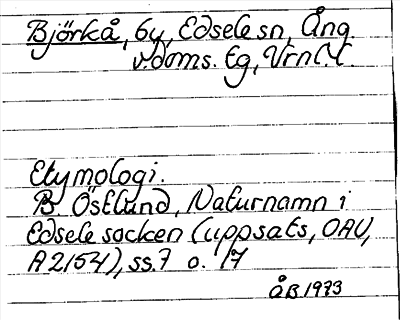 Björkå, by, Edsele sn, Ång.
v.doms. Eg, Vrn C.I.
Etymologi.
B. Östlund, Naturnamn i
Edsele socken (uppsats, OAU,
A 2154), ss. 7 o. 17
ÅB 1973